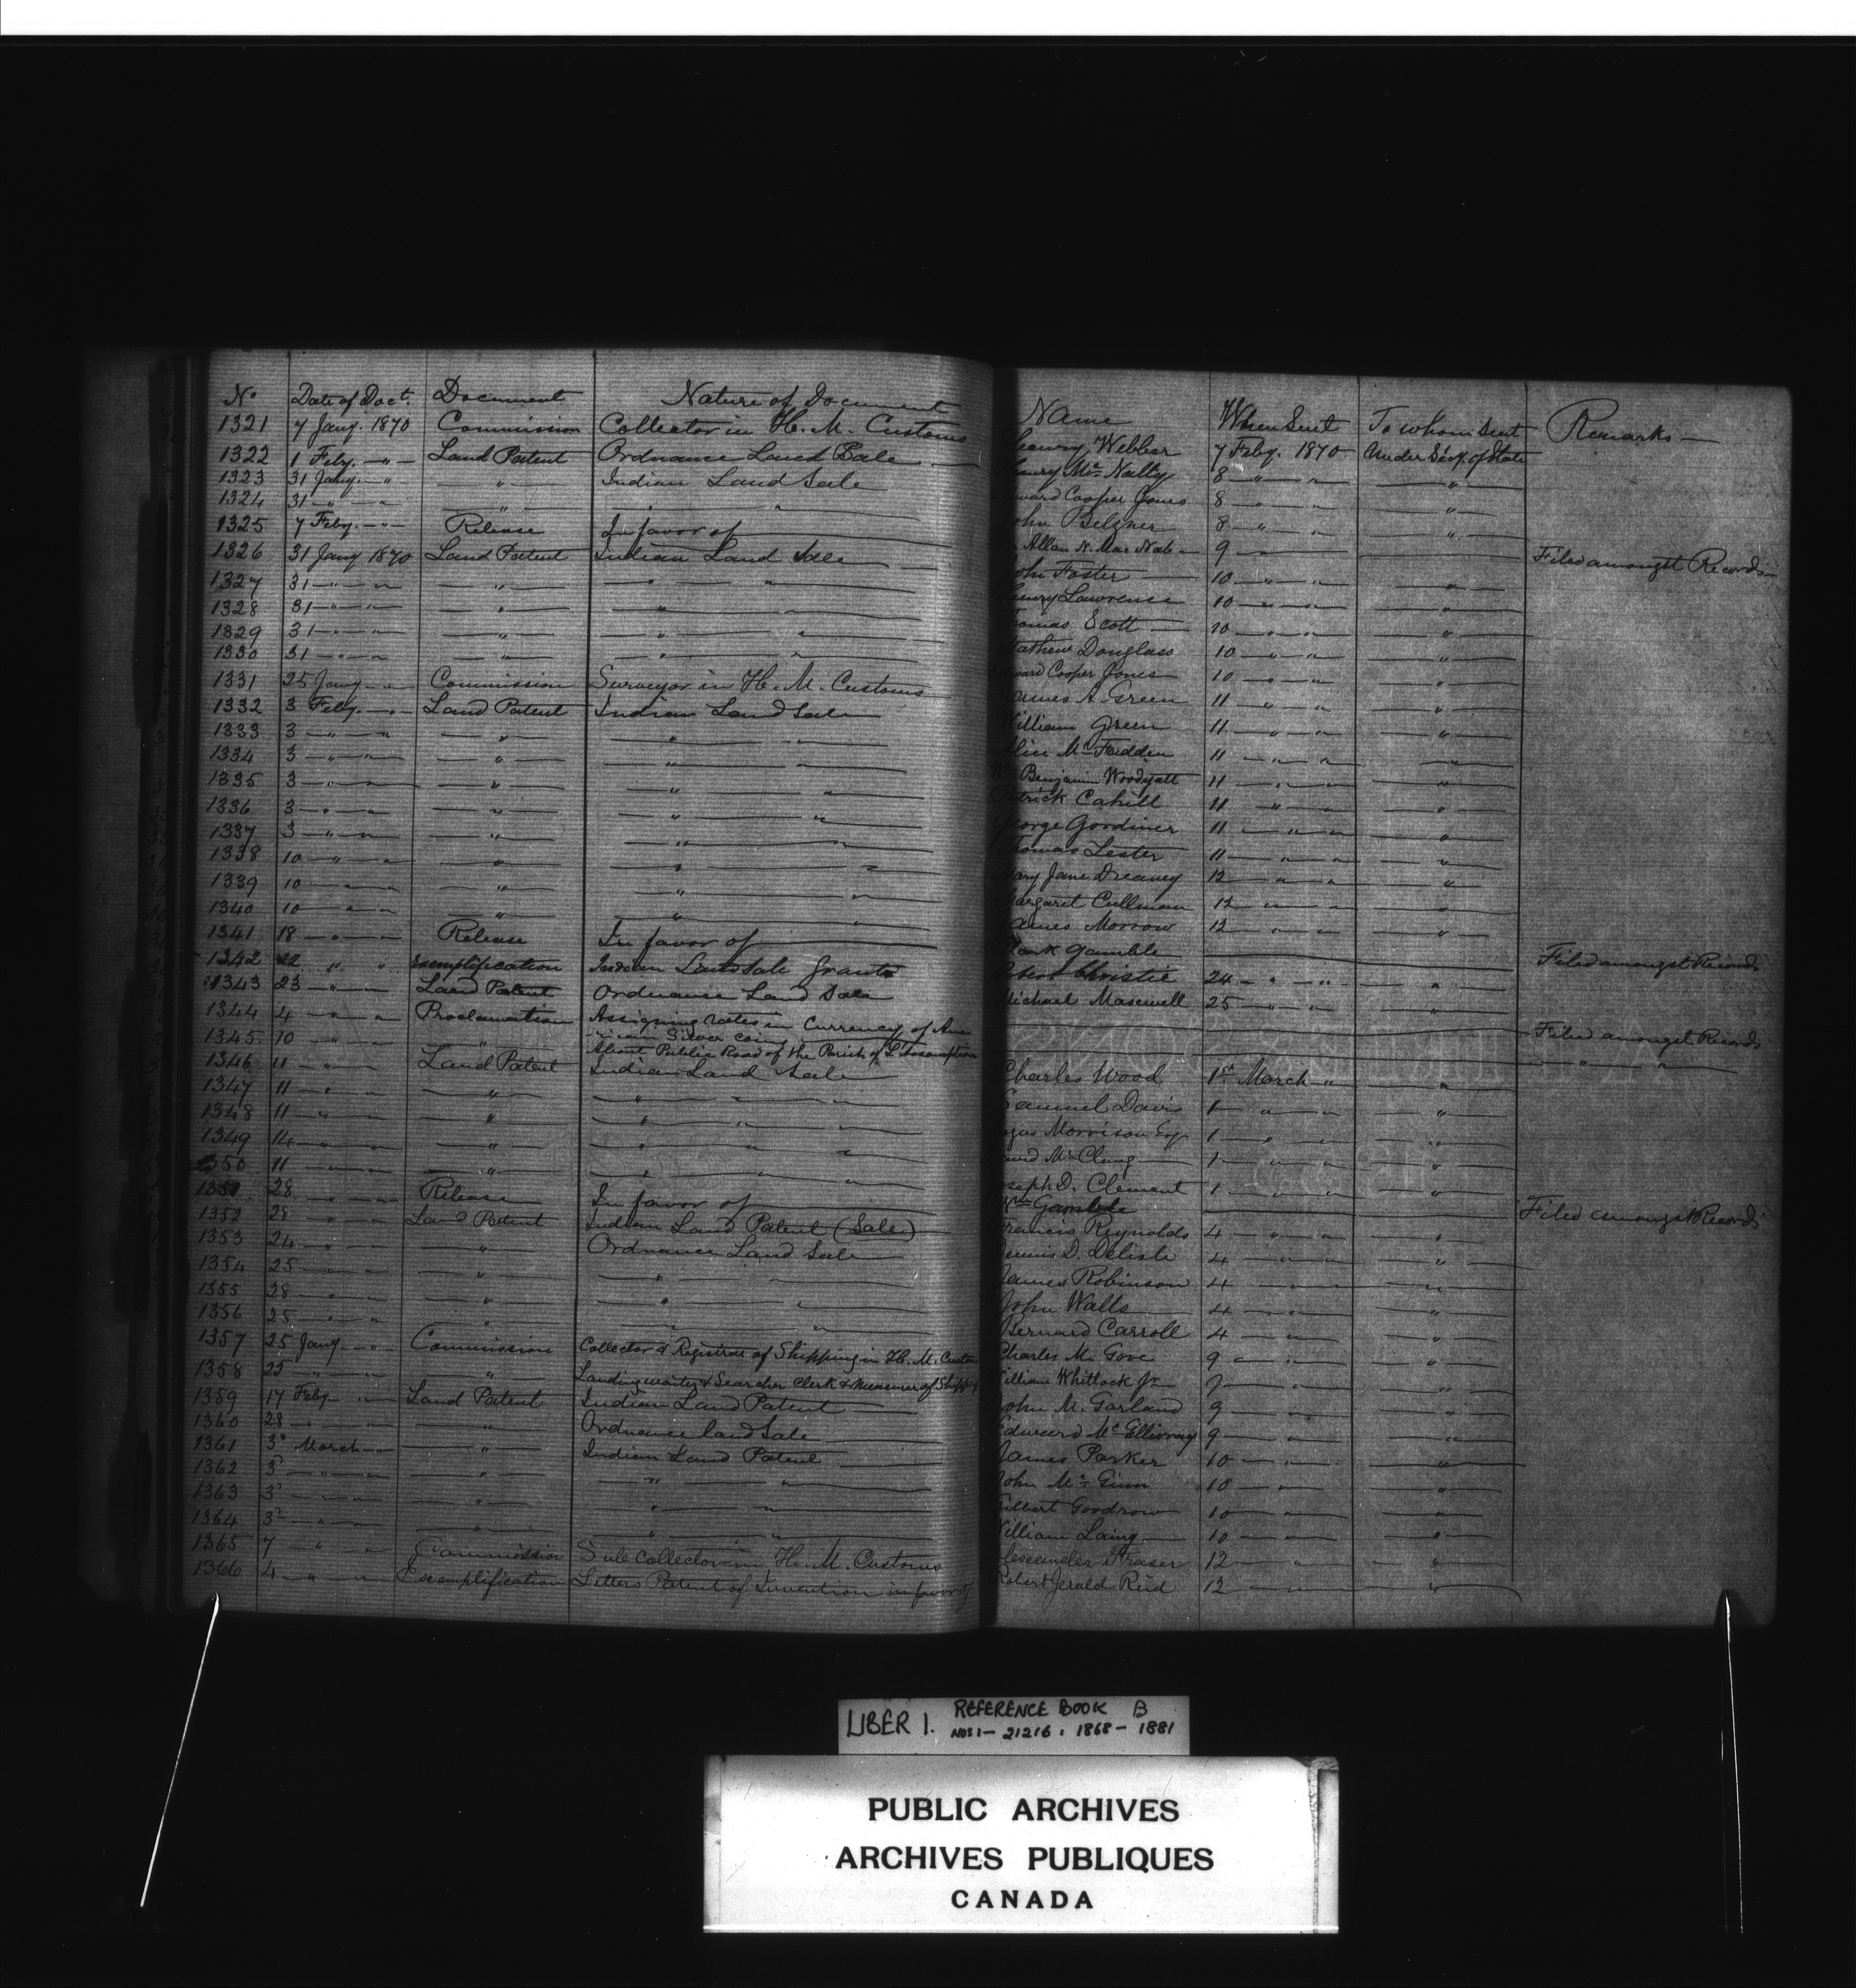 No Date of Doct. Document Nature of Document Name When Sent To whom Sent Remarks
1321 7 Jany. 1870 Commission Collector in H. M. Customs Henry Webber 7 Feby. 1870 Under Secy. of State
1322 1 Feby. " Land Patent Ordnance Land Sale Henry McNally 8 " " "
1323 31 Jany. " " Indian Land Sale Edward Cooper Jones 8 " " "
1324 31 " " " " " John Belzner 8 " " "
1325 7 Feby. " Release In favor of Allan N. MacNab 9 Filed amongst Records
1326 31 Jany 1870 Land Patent Indian Land Sale John Foster 10 " " "
1327 31 " " " " " Henry Lawrence 10 " " "
1328 31 " " " " " Thomas Scott 10 " " "
1329 31 " " " " " Mathew Douglass 10 " " "
1330 31 " " " " " Edward Cooper Jones 10 " " "
1331 25 Jany " Commission Surveyor in H. M. Customs James A. Green 11 " " "
1332 3 Feby. " Land Patent Indian Land Sale William Green 11 " " "
1333 3 " " " " " Alice McFadden 11 " " "
1334 3 " " " " " Wm Benjamin Woodyatt 11 " " "
1335 3 " " " " " Patrick Cahill 11 " " "
1336 3 " " " " " George Gordiner 11 " " "
1337 3 " " " " " Thomas Lester 11 " " "
1338 10 " " " " " Mary Jane Dreaney 12 " " "
1339 10 " " " " " Margaret Cullman 12 " " "
1340 10 " " " " " James Morrow 12 " " "
1341 18 " " Release In favor of Clark Gamble Filed amongst Records
1342 22 " " Exemplification Indian Land Sale Grants Christie 24 " " "
1343 23 " " Land Patent Ordnance Land Sale Michael Maxwell 25 " " "
1344 4 " " Proclamation Assigning rates in Currency of Ame
rican Silver coin Filed amongst Records
1345 10 " " " About Public Road of the Parish of L'Assomption " "
1346 11 " " Land Patent Indian Land Sale Charles Wood 1st March " "
1347 11 " " " " " Samuel Davis 1 " " "
1348 11 " " " " " Angus Morrison Esq 1 " " "
1349 14 " " " " " David McClung 1 " " "
1350 11 " " " " " Joseph D. Clement 1 " " "
1351 28 " " Release In favor of Gamble Filed amongst Records
1352 28 " " Land Patent Indian Land Patent (Sale) Francis Reynolds 4 " " "
1353 24 " " " Ordnance Land Sale Dennis D. Delisle 4 " " "
1354 25 " " " " " James Robinson 4 " " "
1355 28 " " " " " John Walls 4 " "
1356 25 " " " " " Bernard Carroll 4 " "
1357 25 Jany " Commission Collector & Registrar of Shipping in H. M. Customs Charles M. Gove 9 " "
1358 25 " " " Landing waiter & Searcher Clerk & Measurer of Shipping William Whitlock Jr 9 " "
1359 17 Feby " Land Patent Indian Land Patent John M. Garland 9 " "
1360 28 " " " Ordnance land Sale Edward McGillivray 9 " "
1361 3d March " " Indian Land Patent James Parker 10 " "
1362 3 " " " " " John McGinn 10 " "
1363 3d " " " " " Gilbert Goodrow 10 " "
1364 3d " " " " " William Laing 10 " "
1365 7 " " Commission Sub Collector in H. M. Customs Alexander Fraser 12 " "
1366 4 " " Exemplification Letters Patent of Invention in favor of Robert Jerald Reid 12 " "
LIBER 1. REFERENCE BOOK B
NOS 1 - 21216. 1868 - 1881
PUBLIC ARCHIVES
ARCHIVES PUBLIQUES
CANADA